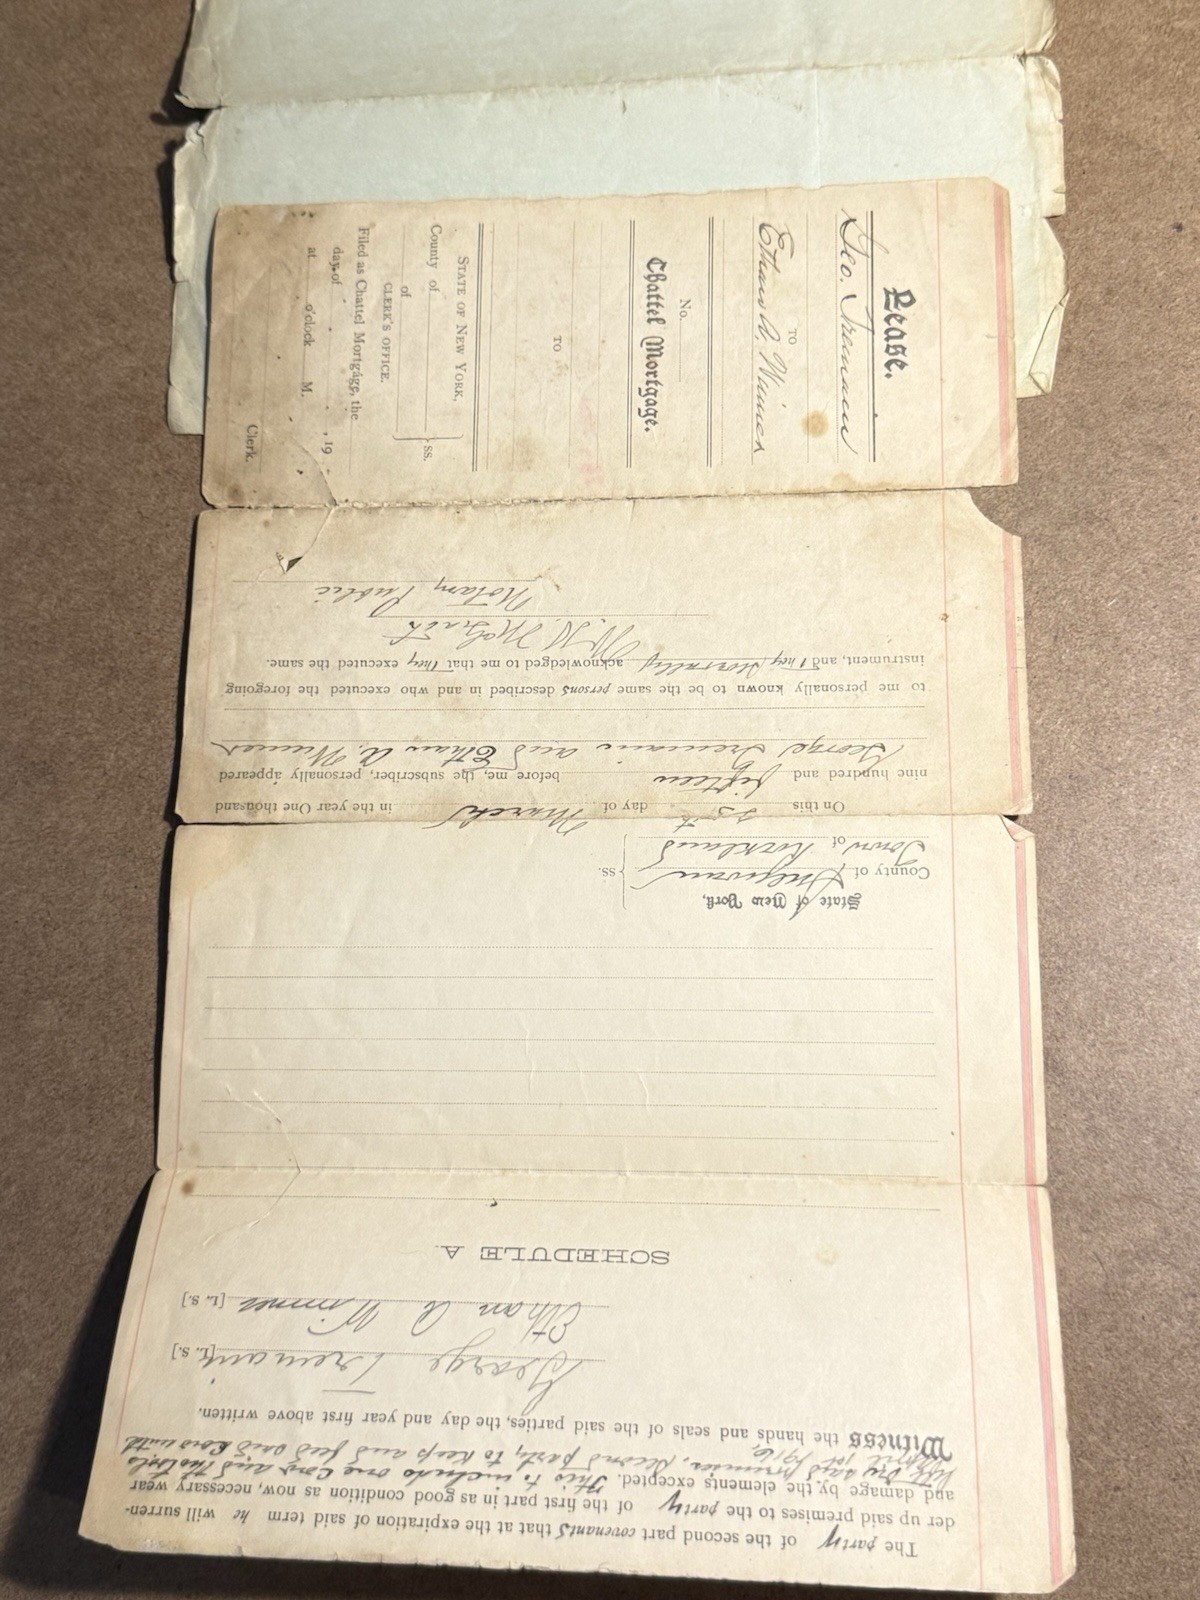 Lease.
Geo. Tremain
TO
Ethan A. Winner
No.
Chattel Mortgage.
TO
STATE OF NEW YORK,
County of
ss.
of
CLERK'S OFFICE.
Filed as Chattel Mortgage, the
day of , 19
at o'clock M.
Clerk.
The party of the second part covenants that at the expiration of said term he will surren-
der up said premises to the party of the first part in as good condition as now, necessary wear
and damage by the elements, excepted. This to include one Cow and the tools
now on said premises, second party to keep and feed said Cow until
April 1st 1916.
Witness the hands and seals of the said parties, the day and year first above written.
George Tremain [L. S.]
Ethan A Winner [L. S.]
SCHEDULE A.
State of New York,
County of Sullivan
ss.
Town of Rockland
On this 25th day of March in the year One thousand
nine hundred and fifteen before me, the subscriber, personally appeared
George Tremain and Ethan A. Winner
to me personally known to be the same persons described in and who executed the foregoing
instrument, and they severally acknowledged to me that they executed the same.
Notary Public